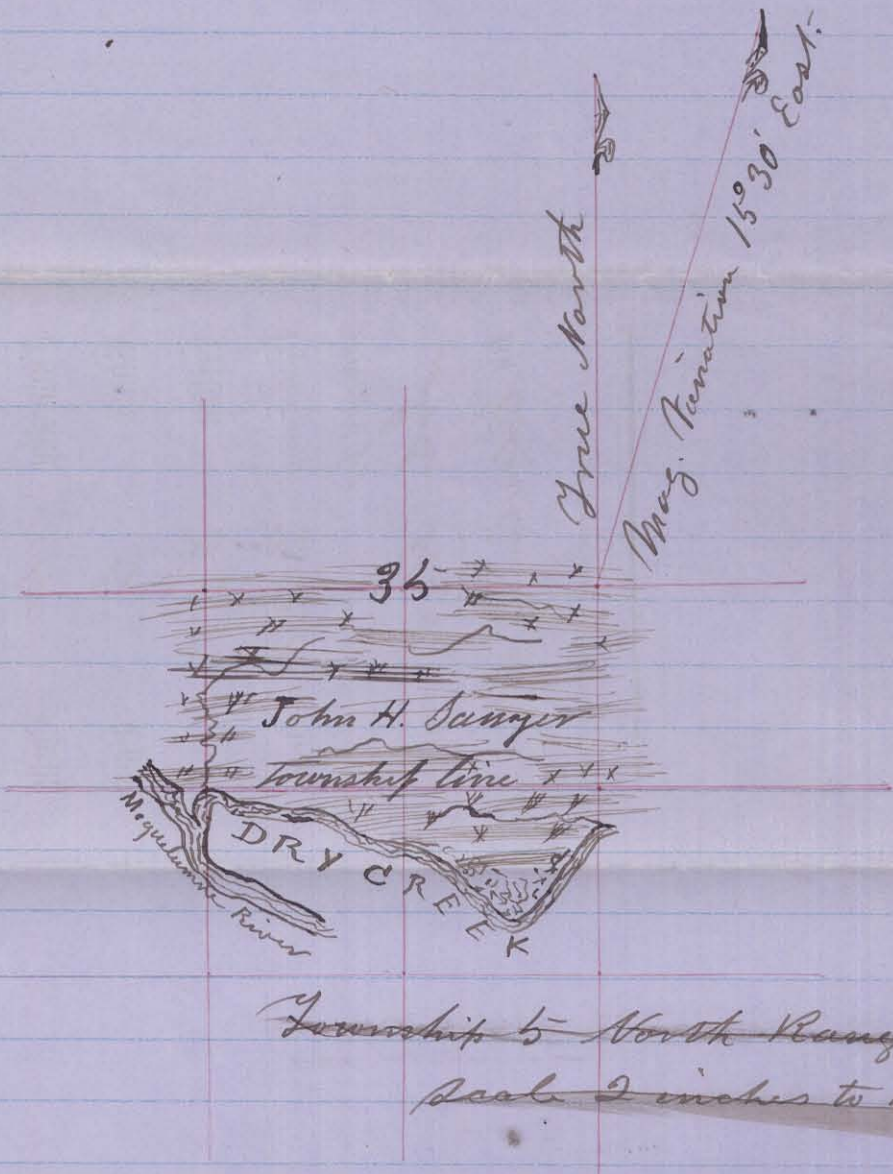 True North
Mag. Variation 15° 30' East.
35
John H. Sawyer
Township line
Moquelumne River
DRY CREEK
Township 5 North Rang
Scale 2 inches to